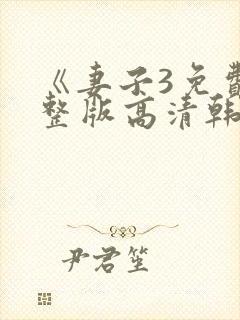 《妻子3免費
整版高清韩
尹君笙